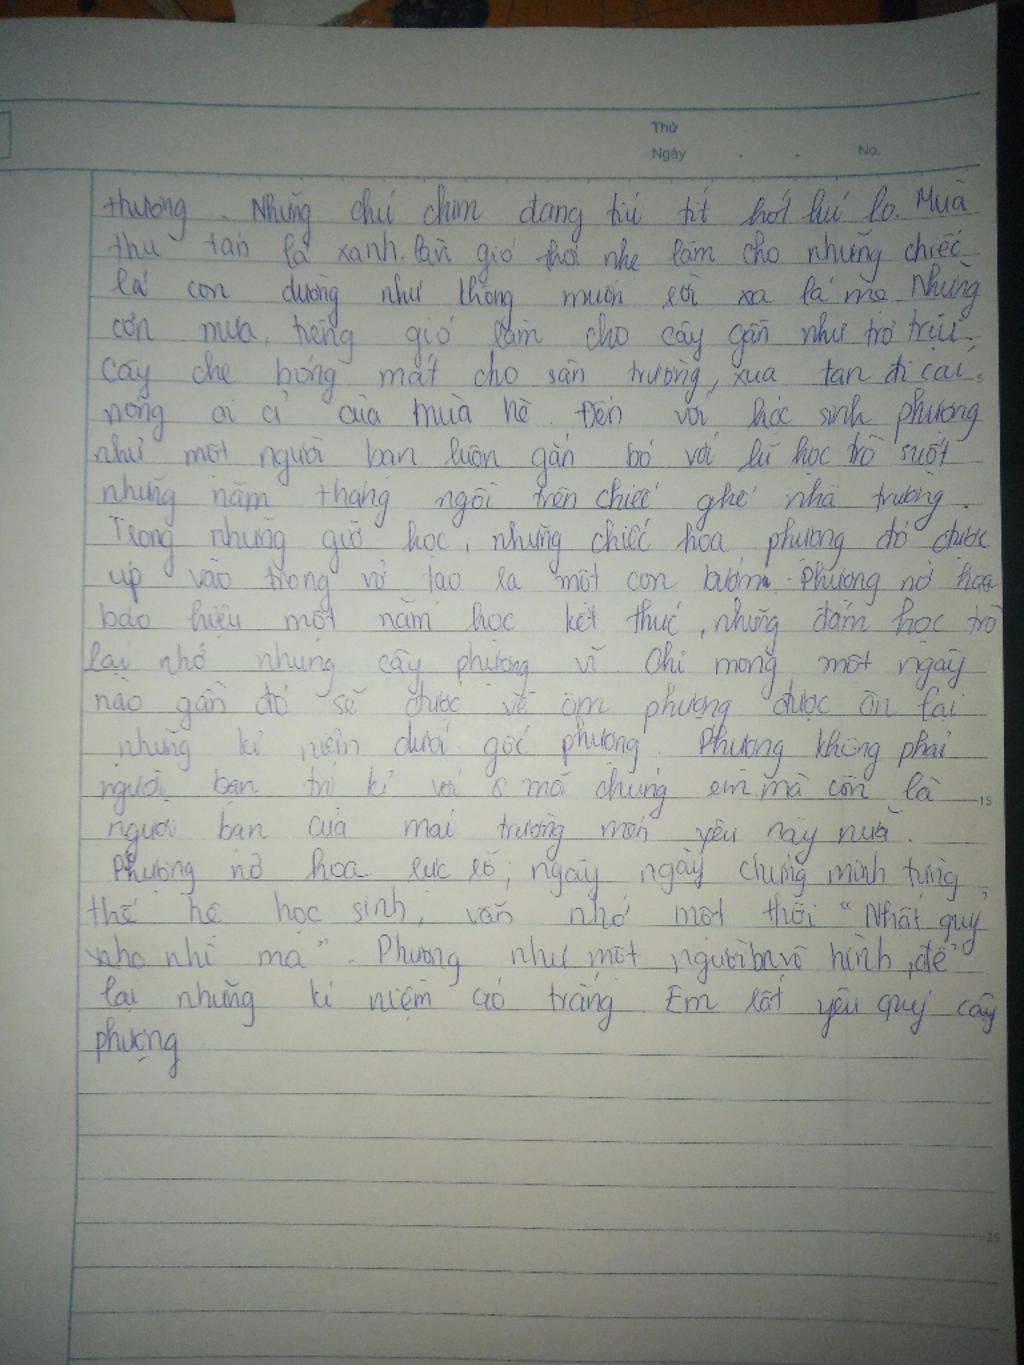 Thứ
Ngày . . No.
thương. Những chú chim đang tíu tít hót líu lo. Mùa
thu tán lá xanh. làn gió thổi nhẹ làm cho những chiếc
lá con dường như không muốn rời xa lá mẹ. Những
cơn mưa, tiếng gió làm cho cây gần như trơ trụi.
Cây che bóng mát cho sân trường, xua tan đi cái
nóng oi ả của mùa hè. Đến với học sinh phượng
như một người bạn luôn gắn bó với lũ học trò suốt
những năm tháng ngồi trên chiếc ghế nhà trường.
Trong những giờ học, những chiếc hoa phượng đó được
úp vào trong vở tạo ra một con bướm. Phượng nở hoa
báo hiệu một năm học kết thúc, những đám học trò
lại nhớ nhung cây phượng vĩ. Chỉ mong một ngày
nào gần đó sẽ được về ôm phượng được ôn lại
những kỉ niệm dưới gốc phượng. Phượng không phải
người bạn tri kỉ với mỗi chúng em mà còn là
15
người bạn của mái trường mến yêu này nữa.
Phượng nở hoa rực rỡ, ngày ngày chứng minh từng
thế hệ học sinh, vẫn nhớ một thời "Nhất quỷ
nhì ma". Phượng như một người vô hình, để
lại những kỉ niệm áo trắng. Em rất yêu quý cây
phượng
25